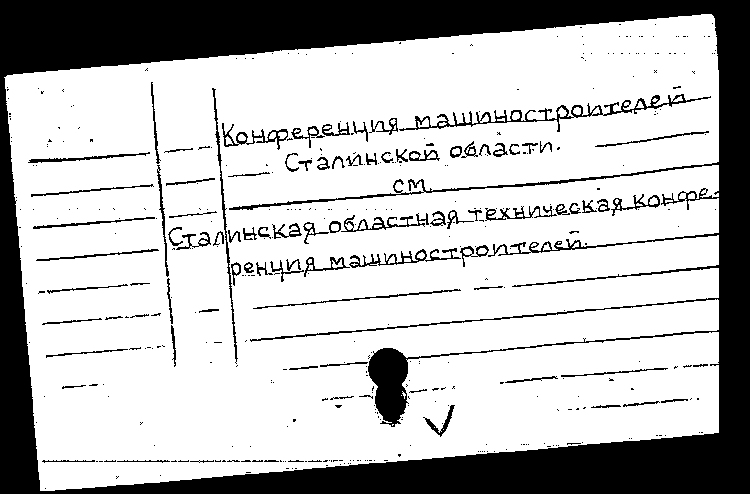 Конференция машиностроителей
Сталинской области.
см.
Сталинская областная техническая конфе-
ренция машиностроителей.